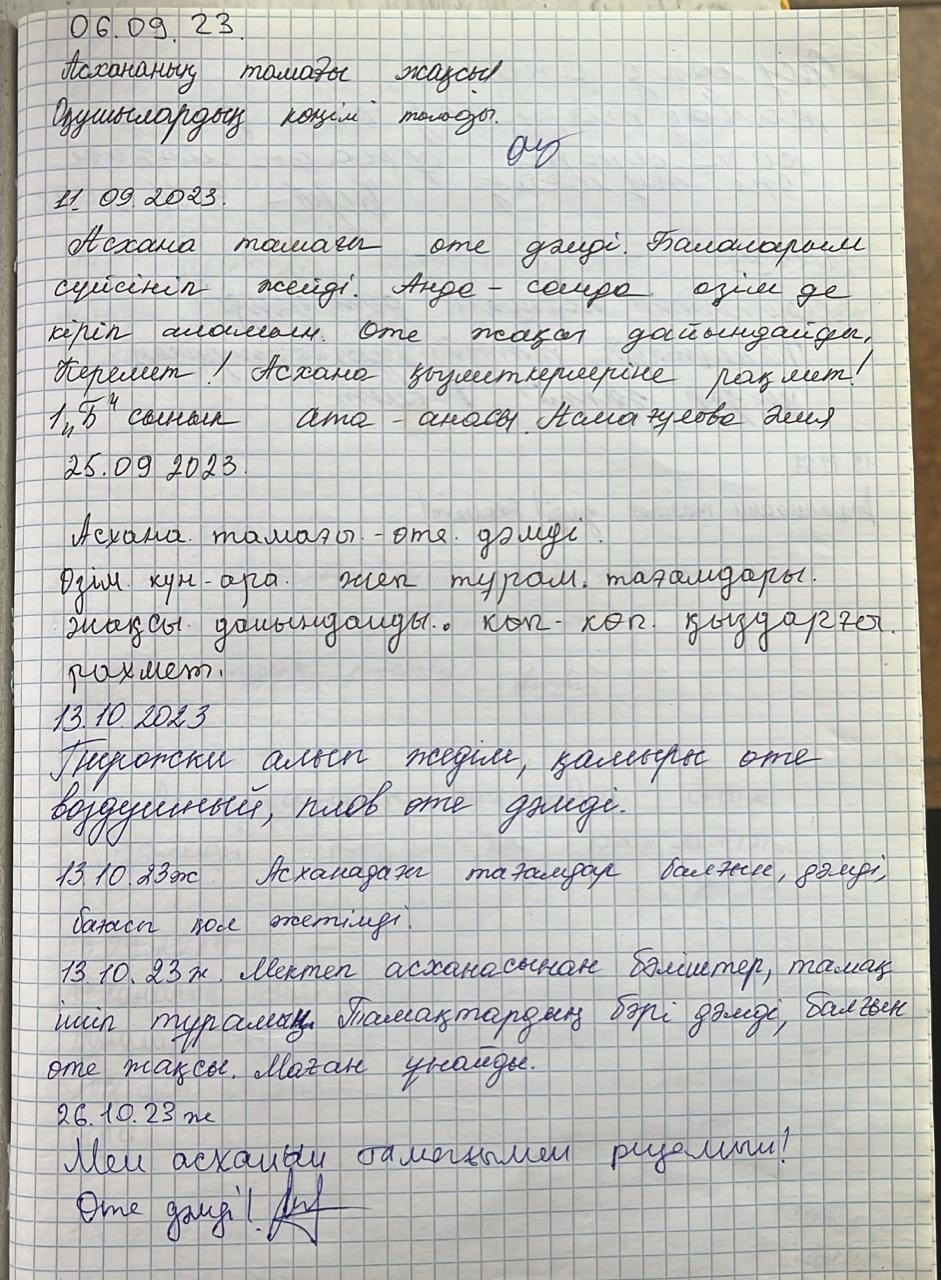 06.09.23.
Асхананың тамағы жақсы!
Оқушылардың көңілі толады.
11.09.2023.
Асхана тамағы өте дәмді. Балаларым
сүйсініп жейді. Анда-санда өзім де
кіріп аламын. Өте жақсы дайындайды,
Керемет! Асхана қызметкерлеріне рақмет!
1 „Б" сынып ата-анасы Асматулова Элия
25.09.2023.
Асхана тамағы - өте дәмді.
Өзім күн-ара жеп турам. тағамдары.
жақсы дайындалды. көп-көп қыздарға
рахмет.
13.10.2023
Пирожки алып жедім, қамыры өте
воздушный, плов өте дәмді.
13.10.23ж Асханадағы тағамдар балғын, дәмді,
бағасы қол жетімді.
13.10.23ж. Мектеп асханасынан бәліштер, тамақ
ішіп тұрамын. Тамақтардың бәрі дәмді, балғын
өте жақсы. Маған ұнайды.
26.10.23ж
Мен асханың тамағымен
Өте дәмді!